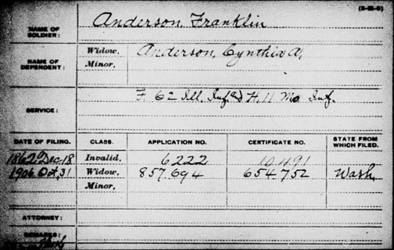 (3-2-6)
NAME OF SOLDIER: Anderson, Franklin
NAME OF DEPENDENT: Widow, Anderson, Cynthia A,
Minor,
SERVICE: F. 6" Ill. Inf & H. 11 Mo. Inf.
DATE OF FILING. CLASS. APPLICATION NO. CERTIFICATE NO. STATE FROM WHICH FILED.
1862 Dec 18 Invalid, 6222 10.491
1906 Oct, 31 Widow, 857.694 654.752 Wash
Minor,
ATTORNEY:
REMARKS: